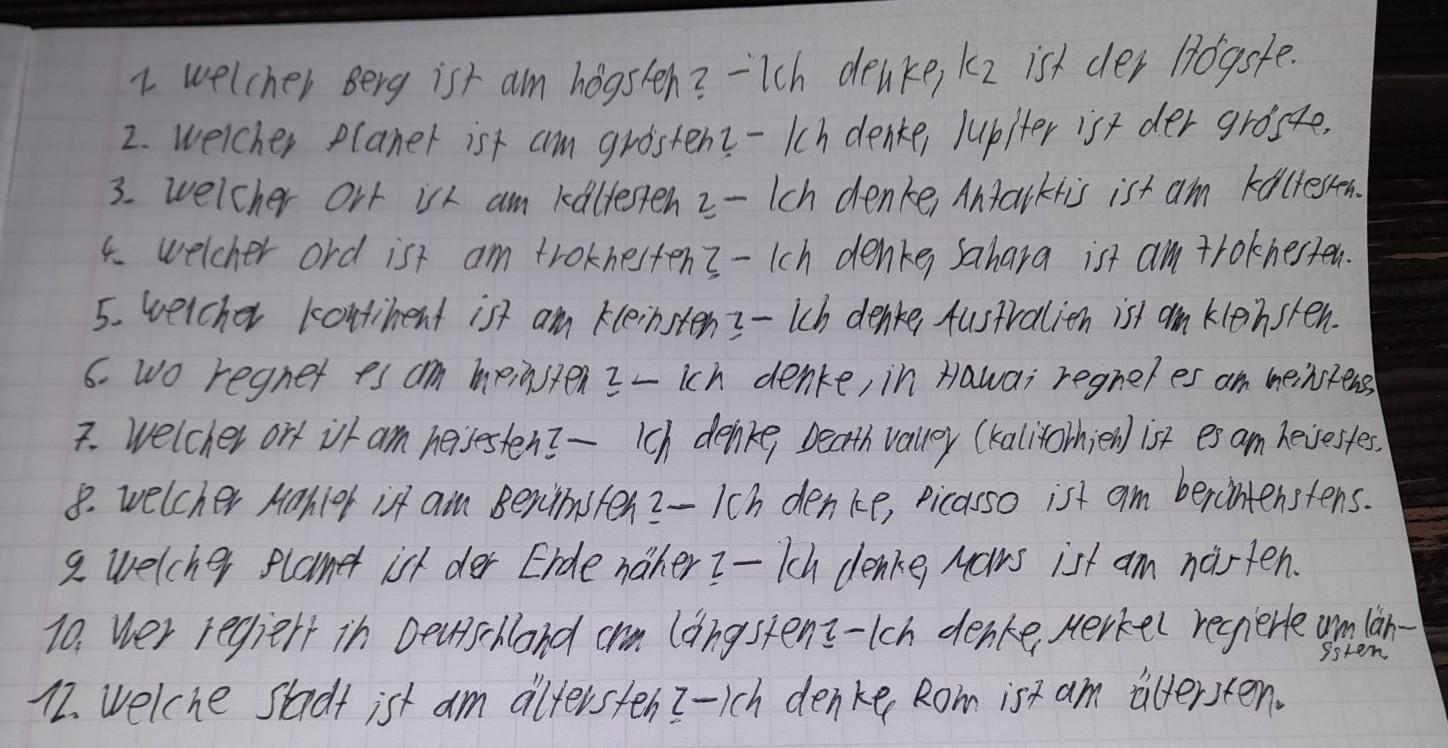 1. Welcher Berg ist am högsten? - Ich denke, K2 ist der Högste.
2. Welcher Planet ist am grösten? - Ich denke, Jupiter ist der gröste.
3. Welcher Ort ist am kältesten? - Ich denke, Antarktis ist am kältesten.
4. Welcher Ord ist am troknesten? - Ich denke, Sahara ist am troknesten.
5. Welcher Kontinent ist am kleinsten? - Ich denke, Australien ist am kleinsten.
6. Wo regnet es am meinsten? - Ich denke, in Hawai regnet es am meinstens
7. Welcher ort ist am heisesten? - Ich denke, Death valley (Kalifornien) ist es am heisestes.
8. Welcher Mahler ist am Berümsten? - Ich denke, Picasso ist am berüntenstens.
9. Welcher Planet ist der Erde näher? - Ich denke, Mars ist am närsten.
10. Wer regiert in Deutschland am längsten? - Ich denke, Merkel regierte am län-
gsten
12. Welche Stadt ist am ältersten? - Ich denke, Rom ist am ältersten.